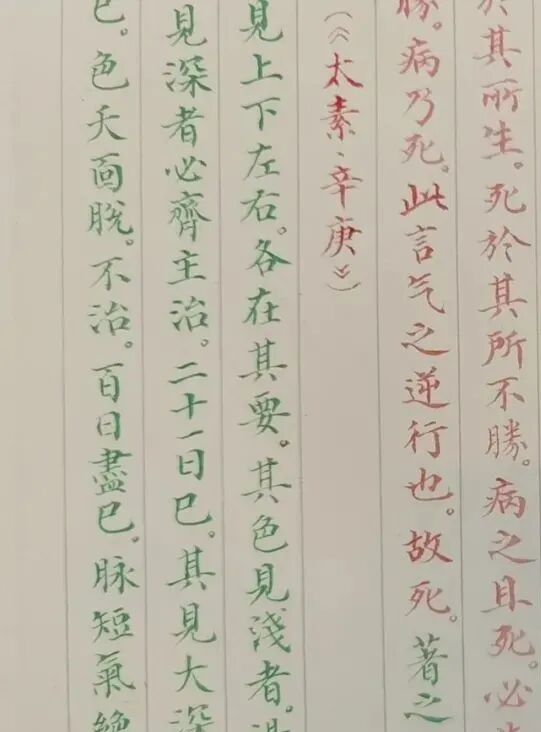 其所生。死於其所不勝。病之且死。必
勝。病乃死。此言气之逆行也。故死。著之
（《太素·辛庚》）
見上下左右。各在其要。其色見淺者。湯
見深者必齊主治。二十一日巳。其見大深
巳。色夭面脫。不治。百日盡巳。脉短氣絶